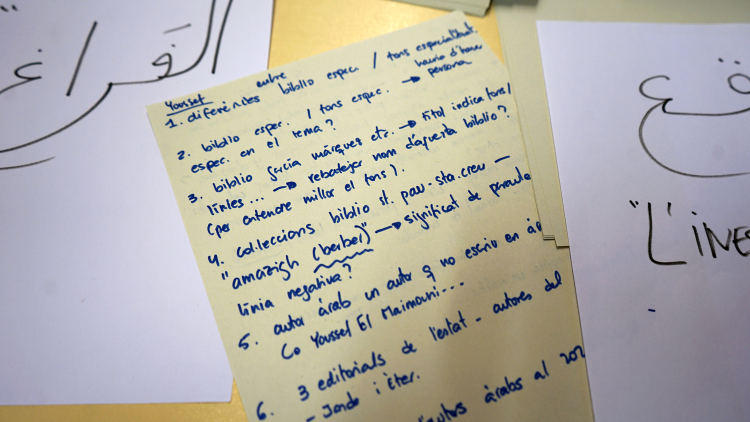 الفراغ
Youssef
1. diferències entre biblio espec. / fons especialitzat.
hauria d'haver
persona
2. biblio espec. / fons espec. →
espec. en el tema?
3. biblio garcía márquez etc. → títol indica fons/
línies ... → rebatejar nom d'aquesta biblio?
(per entendre millor el fons).
4. col·leccions biblio st. pau - sta. creu —
"amazigh (berber)" → significat de paraula
línia negativa?
5. autor àrab un autor q no escriu en
(o Youssef El Maimouni...
6. 3 editorials de l'estat - autores del
- Jande i Èter.
àrabs al 202
"L'INES